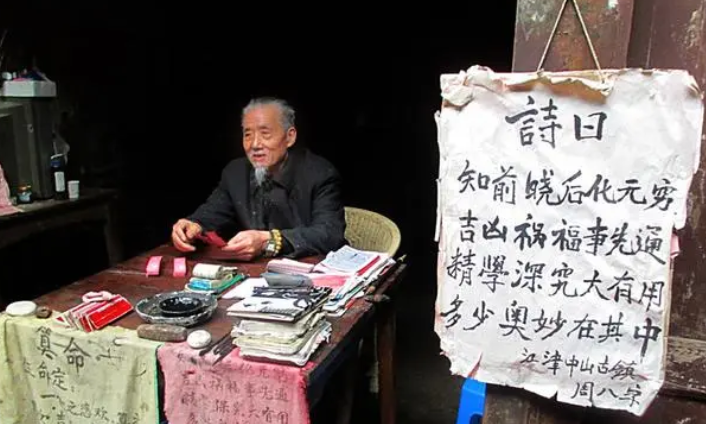 詩曰
知前晓后化元穷
吉凶祸福事先通
精學深究大有用
多少奥妙在其中
江津中山古鎮
周八字
算命
在命定:
吉凶祸福事先通
精學深究大有用